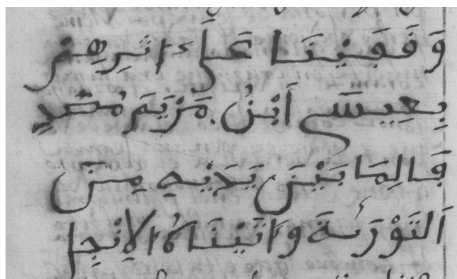 وَقَفَّيْنَا عَلَىٰ ءَاثَٰرِهِمْ
بِعِيسَى اَبْنِ مَرْيَمَ مُصَدِّ
قاً لِمَا بَيْنَ يَدَيْهِ مِنَ
اَلتَّوْرَىٰةِ وَءَاتَيْنَاهُ الاِنْجِـ